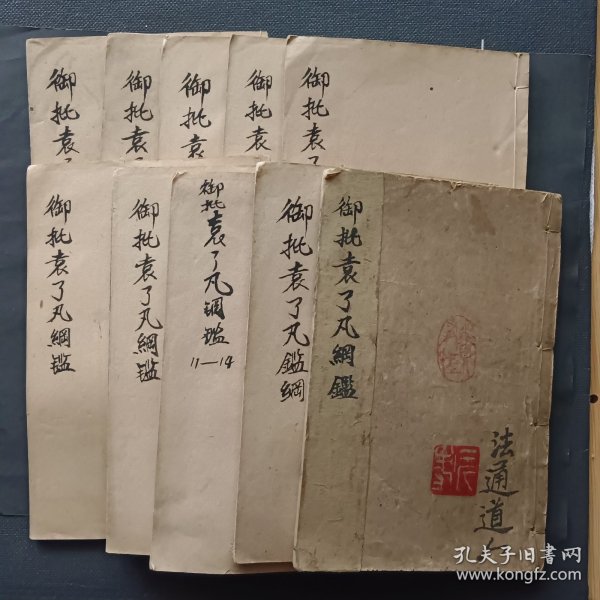 御批袁了
御批袁
御批袁
御批袁
御批袁了
御批袁了凡綱鑑
御批袁了凡綱鑑
御批袁了凡綱鑑
11—14
御批袁了凡鑑綱
御批袁了凡綱鑑
法通道
孔夫子旧书网
www.kongfz.com